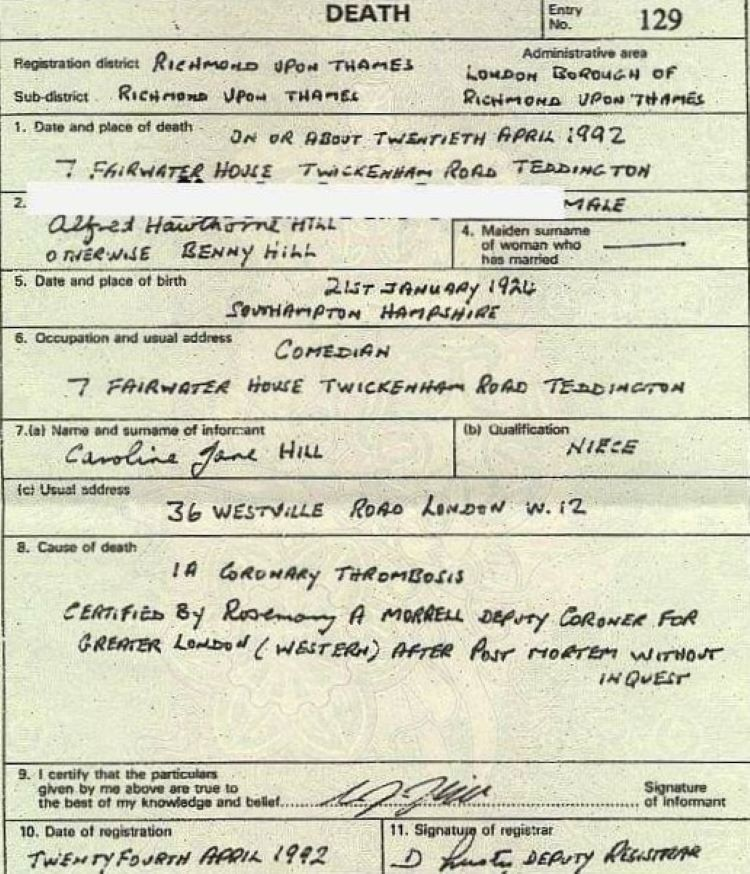 DEATH
Entry No. 129
Registration district RICHMOND UPON THAMES
Administrative area
Sub-district RICHMOND UPON THAMES
LONDON BOROUGH OF
RICHMOND UPON THAMES
1. Date and place of death
ON OR ABOUT TWENTIETH APRIL 1992
7 FAIRWATER HOUSE TWICKENHAM ROAD TEDDINGTON
2. MALE
Alfred Hawthorne HILL
OTHERWISE BENNY HILL
4. Maiden surname
of woman who
has married
5. Date and place of birth
21ST JANUARY 1924
SOUTHAMPTON HAMPSHIRE
6. Occupation and usual address
COMEDIAN
7 FAIRWATER HOUSE TWICKENHAM ROAD TEDDINGTON
7.(a) Name and surname of informant
Caroline Jane HILL
(b) Qualification
NIECE
(c) Usual address
36 WESTVILLE ROAD LONDON W.12
8. Cause of death
1A CORONARY THROMBOSIS
CERTIFIED BY Rosemary A MORRELL DEPUTY CORONER FOR
GREATER LONDON (WESTERN) AFTER POST MORTEM WITHOUT
INQUEST
9. I certify that the particulars
given by me above are true to
the best of my knowledge and belief
Signature
of informant
10. Date of registration
TWENTYFOURTH APRIL 1992
11. Signature of registrar
D DEPUTY REGISTRAR